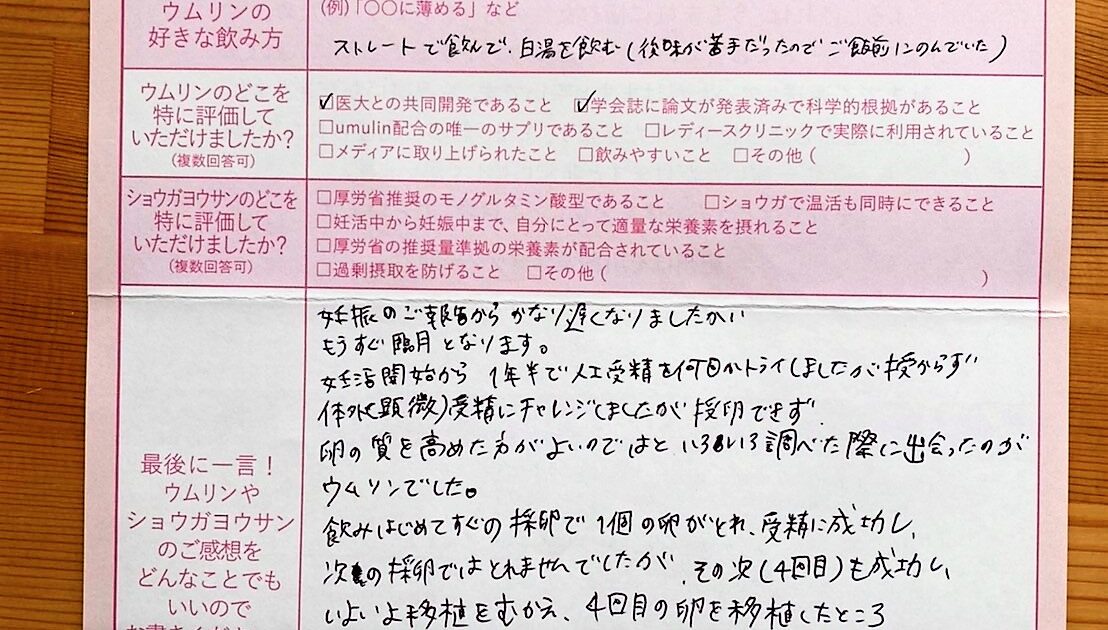 ウムリンの
好きな飲み方
(例)「〇〇に薄める」など
ストレートで飲んで、白湯を飲む(後味が苦手だったのでご飯前にのんでいた)
ウムリンのどこを
特に評価して
いただけましたか?
(複数回答可)
☑医大との共同開発であること ☑学会誌に論文が発表済みで科学的根拠があること
□umulin配合の唯一のサプリであること □レディースクリニックで実際に利用されていること
□メディアに取り上げられたこと □飲みやすいこと □その他( )
ショウガヨウサンのどこを
特に評価して
いただけましたか?
(複数回答可)
□厚労省推奨のモノグルタミン酸型であること □ショウガで温活も同時にできること
□妊活中から妊娠中まで、自分にとって適量な栄養素を摂れること
□厚労省の推奨量準拠の栄養素が配合されていること
□過剰摂取を防げること □その他( )
最後に一言!
ウムリンや
ショウガヨウサン
のご感想を
どんなことでも
いいので
妊娠のご報告からかなり遅くなりましたが
もうすぐ臨月となります。
妊活開始から 1年半で人工受精を何回かトライしましたが授からず
体外(顕微)受精にチャレンジしましたが 採卵できず.
卵の質を高めた方がよいのではと いろいろ調べた際に出会ったのが
ウムリンでした。
飲みはじめてすぐの採卵で1個の卵がとれ、受精に成功し、
次の採卵ではとれませんでしたが、その次(4回目)も成功し、
いよいよ移植をむかえ、4回目の卵を移植したところ